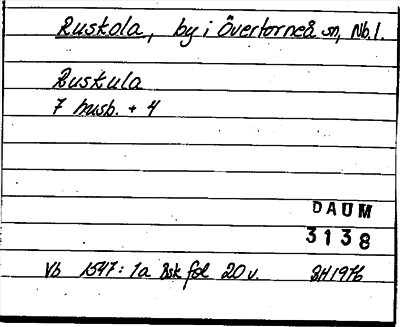 Ruskola, by i Övertorneå sn, Nb.l.
Ruskula
7 husb. + 4
DAUM
3138
Vb 1547: 1a Bsk fol 20 v. BH 1976